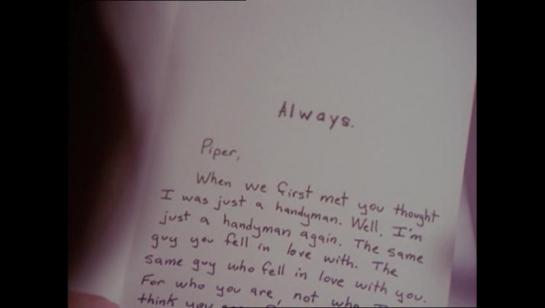 Always.
Piper,
When we first met you thought
I was just a handyman. Well, I'm
just a handyman again. The same
guy you fell in love with. The
same guy who fell in love with you.
For who you are, not who
think you